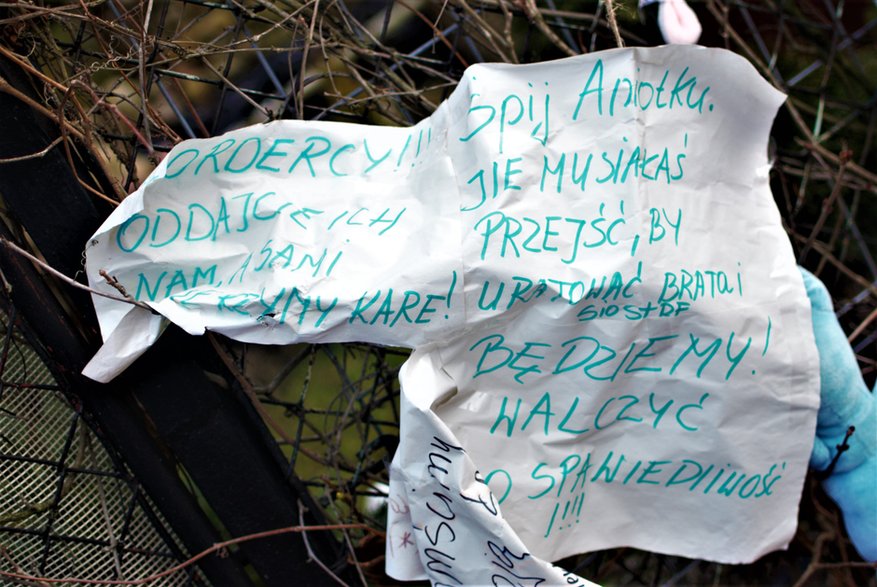 ORDERCY!!!
ODDAJCIE ICH
NAM, A SAMI
KARE!
Śpij Aniołku.
NIE MUSIAŁAŚ
PRZEJŚĆ, BY
URATOWAĆ BRATA i
SIOSTRE
BĘDZIEMY!
WALCZYĆ
O SPAWIEDLIWOŚĆ
!!!!